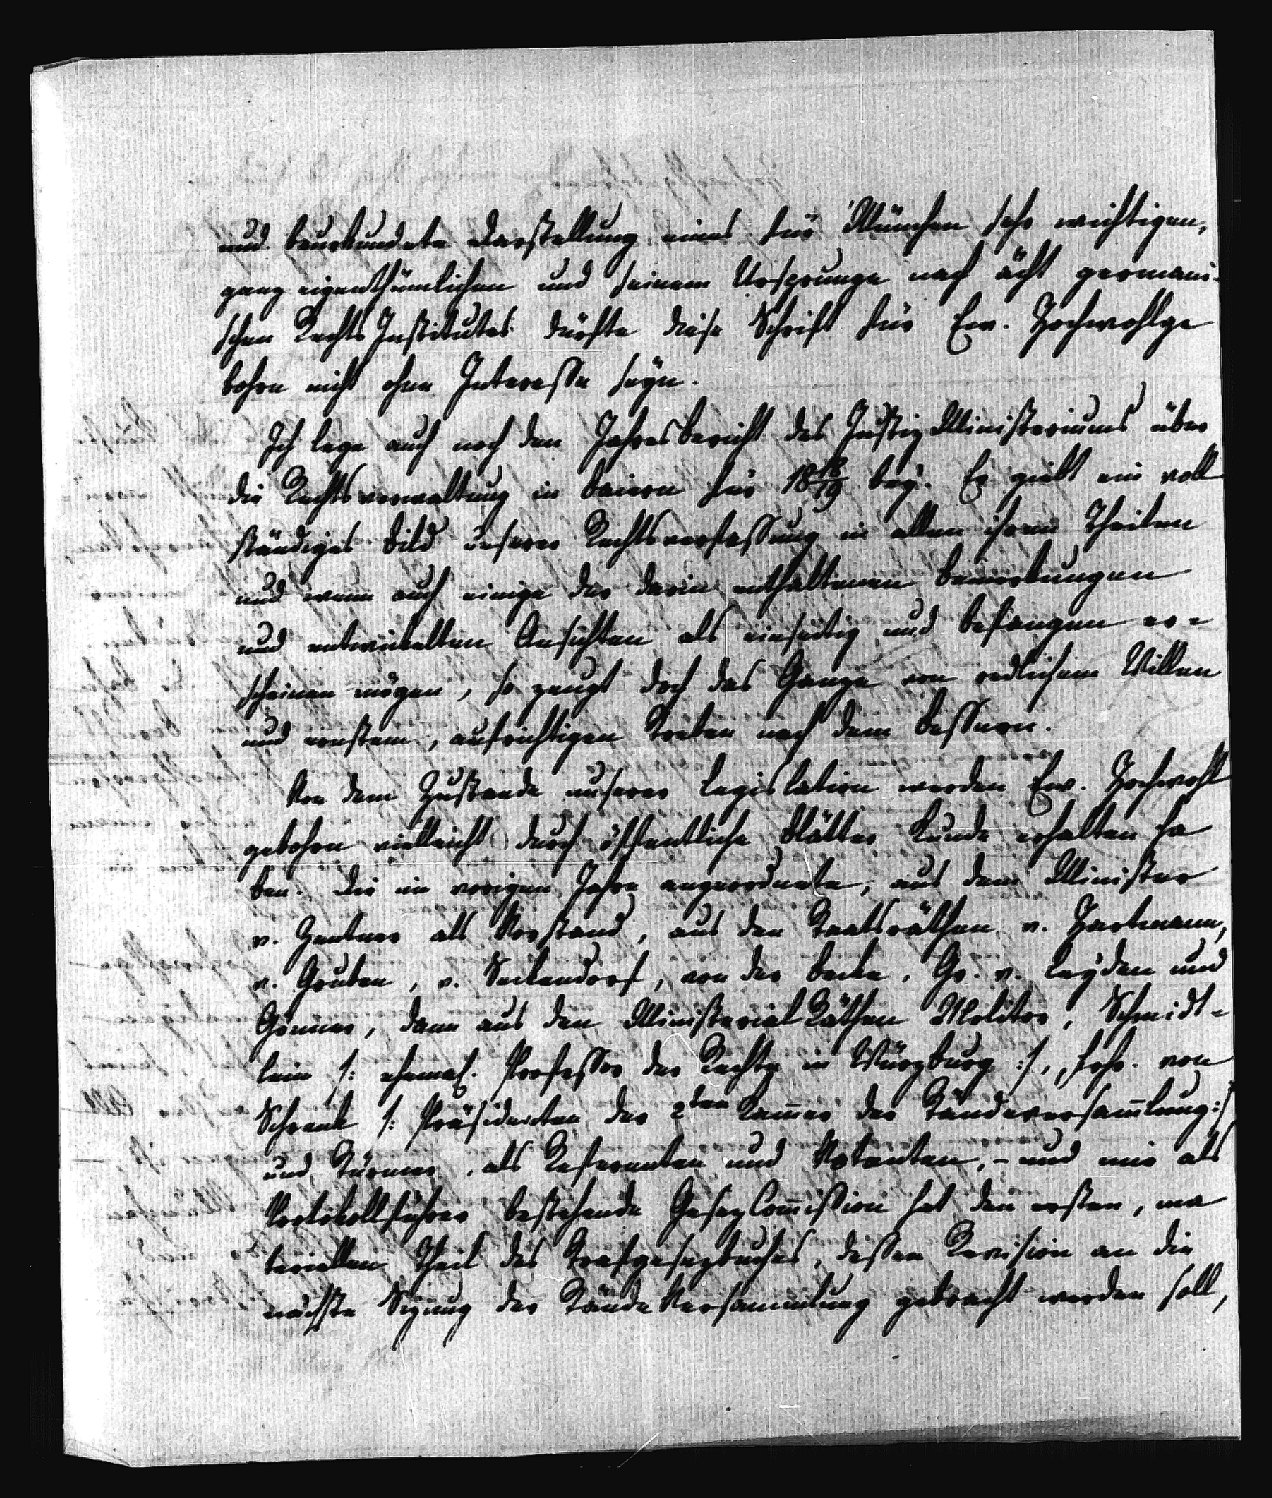 und beurkundete Darstellung eines für München sehr wichtigen,
ganz eigenthümlichen und seinem Ursprunge nach ächt germani-
schen Rechts Institutes dürfte diese Schrift für Ew. Hochwohlge
bohrn nicht ohne Interesse seyn.
Ich lege auch noch den Jahresbericht des Justiz Ministeriums über
die Rechtsverwaltung in Baiern für 18 18/19 bey. Er giebt ein voll
ständiges Bild unserer Rechtsverfassung in allen ihren Theilen
und wenn auch einige der darin enthaltenen Bemerkungen
und entwickelten Ansichten als einseitig und befangen er-
scheinen mögen, so zeugt doch das Ganze von redlichem Willen
und ernstem, aufrichtigen Streben nach dem Bessern.
Von dem Zustande unserer Legislation werden Ew. Hochwohl
gebohrn vielleicht durch öffentliche Blätter Kunde erhalten ha
ben. Die im vorigen Jahre angeordnete, aus dem Minister
v. Zentner als Vorstand, aus den Staatsräthen v. Hartmann,
v. Gruben, v. Seckendorf, von der Becke, Gr. v. Leyden und
Gönner, dann aus den Ministerial Räthen Molitor, Schmidt-
lein /: ehemal. Professor der Rechte in Würzburg :/, Frhr. von
Schrenk /: Präsidenten der 2ten Kammer der Ständeversammlung :/
und Stürmer, als Referenten und Votanten, - und mir als
Protokollführer bestehende Gesez Commission hat den ersten, ma
teriellen Theil des Strafgesezbuches, dessen Revision an die
nächste Sizung der Stände Versammlung gebracht werden soll,